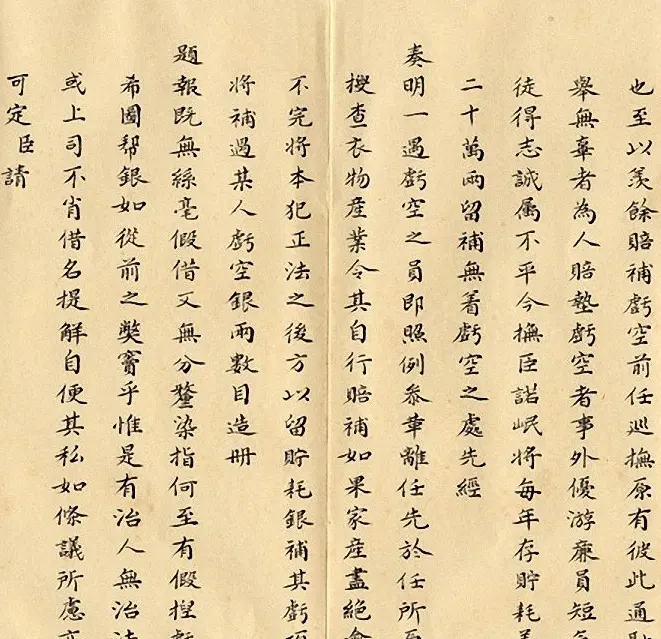 也至以羨餘賠補虧空前任巡撫原有彼此通
舉無辜者為人賠墊虧空者事外優游亷員短
徒得志誠属不平今撫臣諾岷將每年存貯耗
二十萬兩留補無着虧空之處先經
奏明一遇虧空之員即照例叅革離任先於任所
搜查衣物産業令其自行賠補如果家産盡絕
不完將本犯正法之後方以留貯耗銀補其虧
將補過某人虧空銀兩數目造册
題報既無絲毫假借又無分釐染指何至有假捏
希圖帮銀如從前之獘竇乎惟是有治人無治法
或上司不肖借名提解自便其私如條議所慮
可定臣請